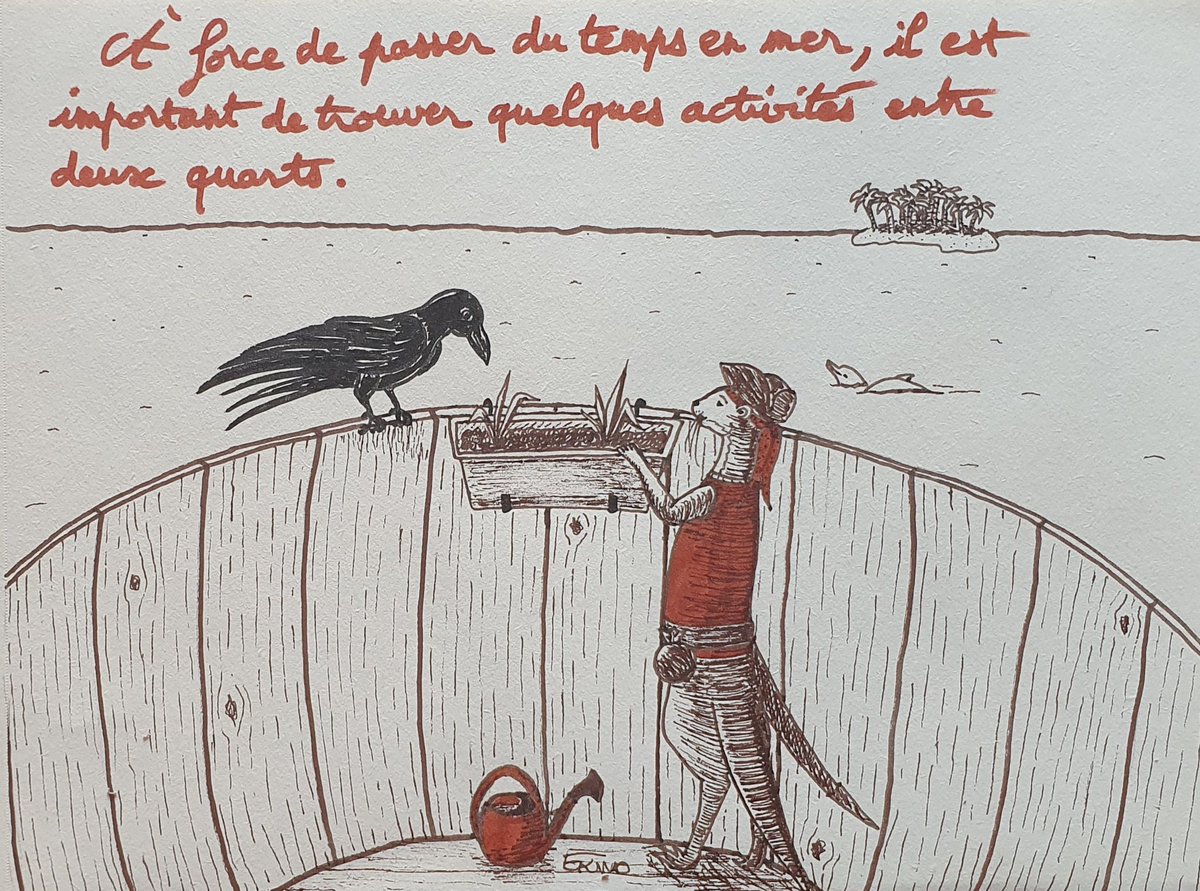 À force de passer du temps en mer, il est
important de trouver quelques activités entre
deux quarts.